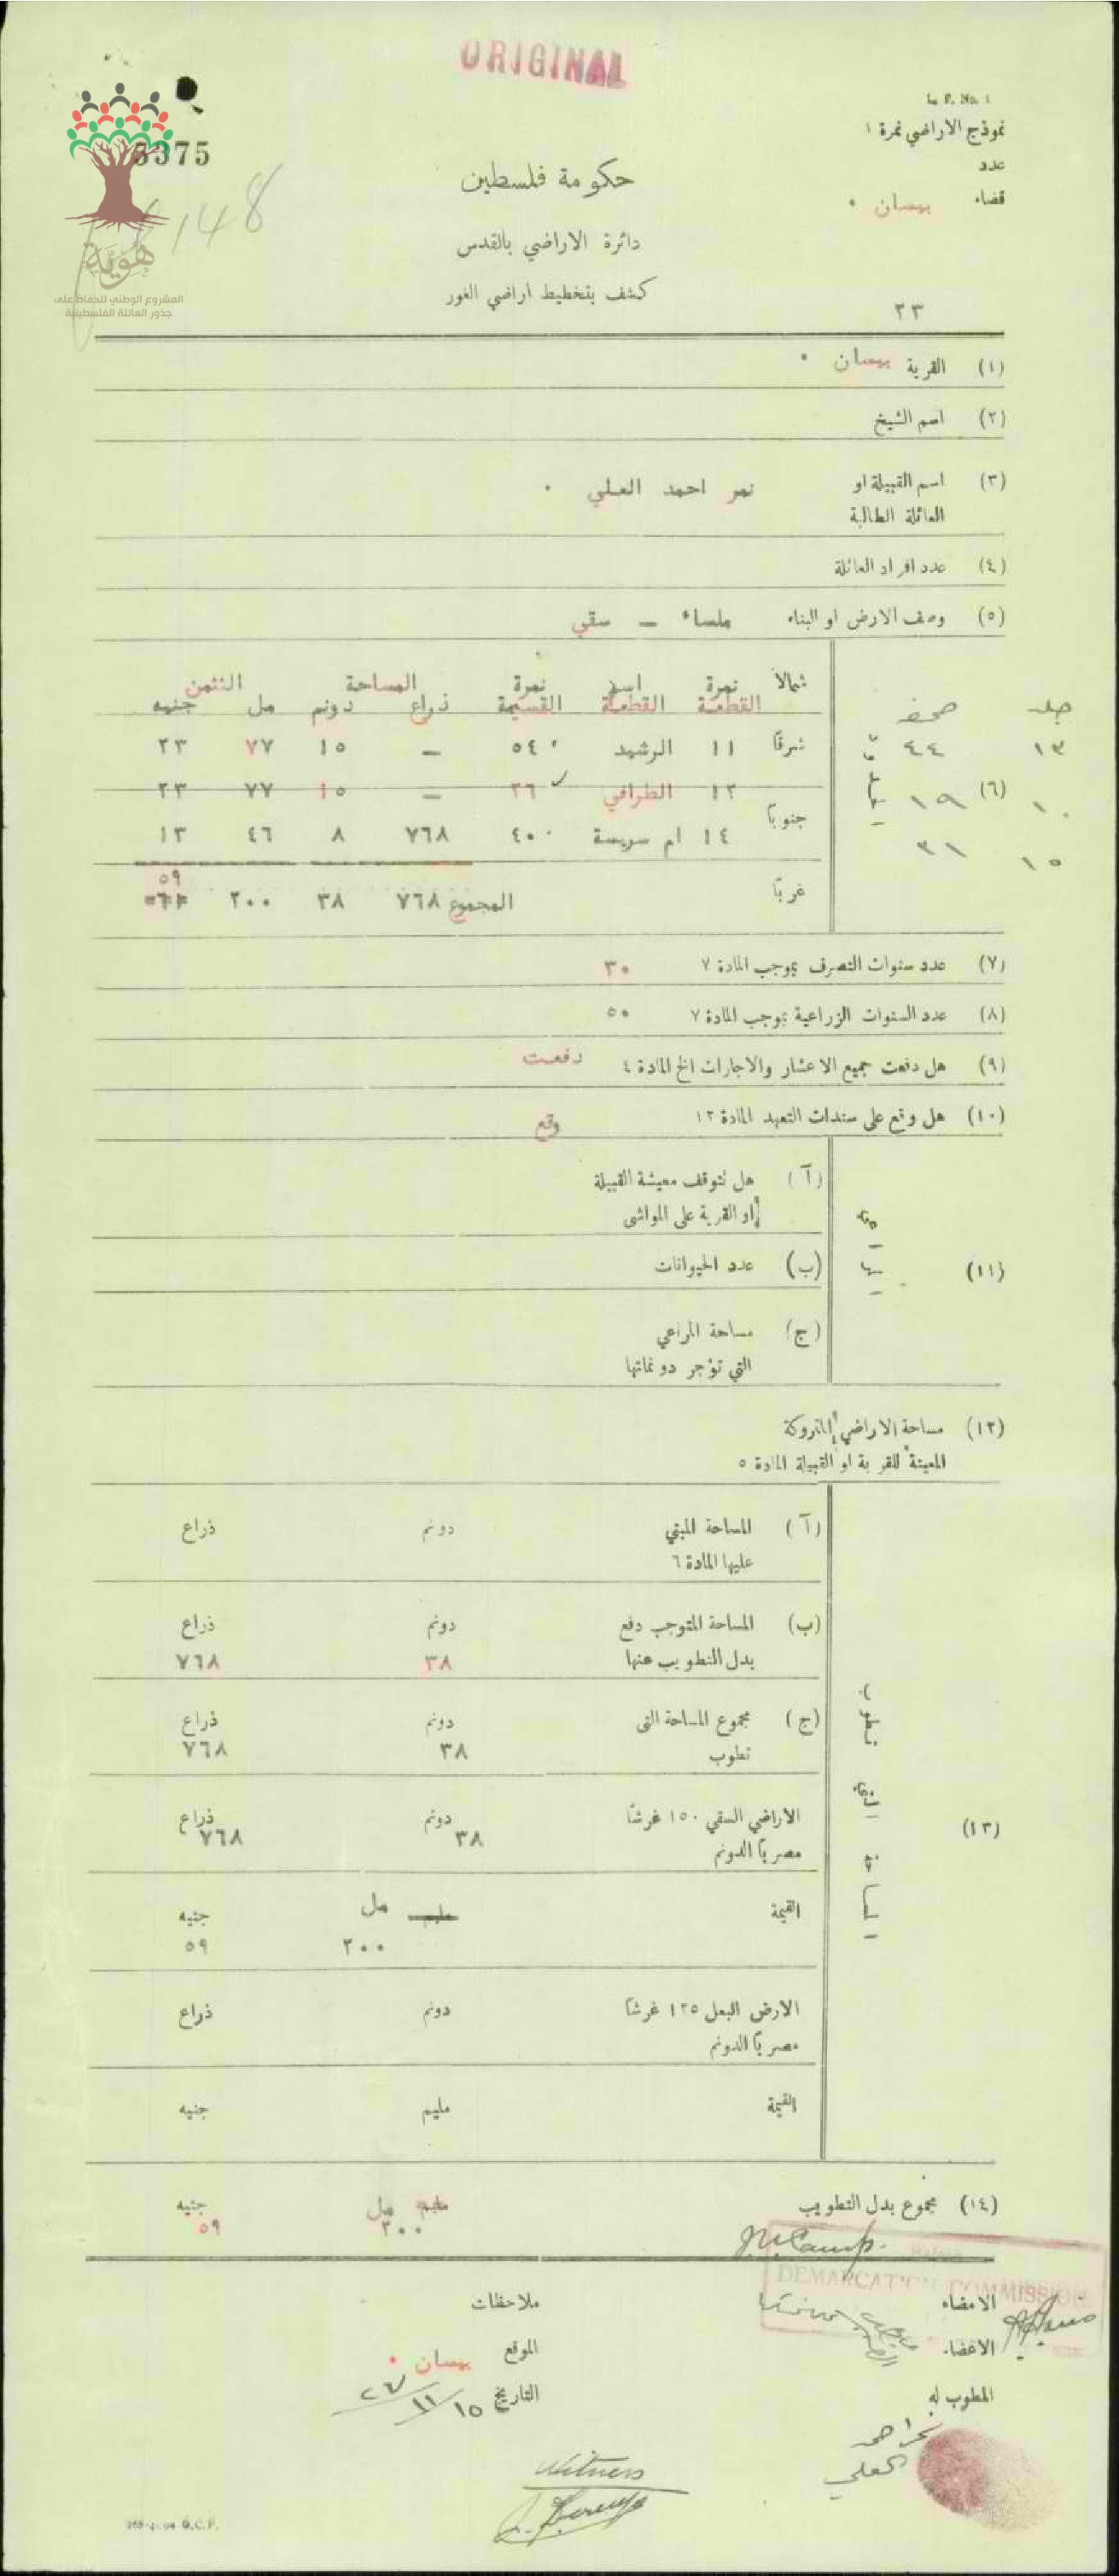 ORIGINAL
L. F. No. 1
نموذج الاراضي نمرة ١
3375
عدد
حكومة فلسطين
قضاء بيسان
148
دائرة الاراضي بالقدس
هوية
المشروع الوطني للحفاظ على
جذور العائلة الفلسطينية
كشف بتخطيط اراضي الغور
٢٣
(١) القرية بيسان
(٢) اسم الشيخ
(٣) اسم القبيلة او نمر احمد العلي
العائلة الطالبة
(٤) عدد افراد العائلة
(٥) وصف الارض او البناء ملساء – سقي
شمالاً نمرة اسم نمرة المساحة الثمن
القطعة القطعة القسيمة ذراع دونم مل جنيه
جلد صحفه
١٣ ٤٤ شرقاً ١١ الرشيد ٥٤ – ١٥ ٧٧ ٢٣
١٠ (٦) ١٩ ١٢ الطرافي ٢٦ – ١٥ ٧٧ ٢٣
١٥ ٣١ جنوباً ١٤ ام سريسة ٤٠ ٧٦٨ ٨ ٤٦ ١٣
٥٩
غرباً المجموع ٧٦٨ ٣٨ ٢٠٠
(٧) عدد سنوات التصرف بموجب المادة ٧ ٣٠
(٨) عدد السنوات الزراعية بموجب المادة ٧ ٥٠
(٩) هل دفعت جميع الاعشار والاجارات الخ المادة ٤ دفعت
(١٠) هل وقع على سندات التعهد المادة ١٢ وقع
(١١)
(آ) هل تتوقف معيشة القبيلة
او القرية على المواشى
(ب) عدد الحيوانات
(ج) مساحة المراعي
التي تؤجر دونماتها
(١٢) مساحة الاراضي المتروكة
المعينة للقرية او القبيلة المادة ٥
(١٣)
(آ) المساحة المبني دونم ذراع
عليها المادة ٦
(ب) المساحة المتوجب دفع دونم ذراع
بدل التطويب عنها ٣٨ ٧٦٨
(ج) مجموع المساحة التى دونم ذراع
تطوب ٣٨ ٧٦٨
الاراضي السقي ١٥٠ غرشاً دونم ذراع
مصرياً الدونم ٣٨ ٧٦٨
القيمة مليم مل جنيه
٢٠٠ ٥٩
الارض البعل ١٢٥ غرشاً دونم ذراع
مصرياً الدونم
القيمة مليم جنيه
(١٤) مجموع بدل التطويب مليم مل جنيه
٢٠٠ ٥٩
DEMARCATION COMMISSION
الامضاء ملاحظات
الاعضاء الموقع بيسان
المطوب له التاريخ ١٥/١١/
العلي
Witness
G.C.P.